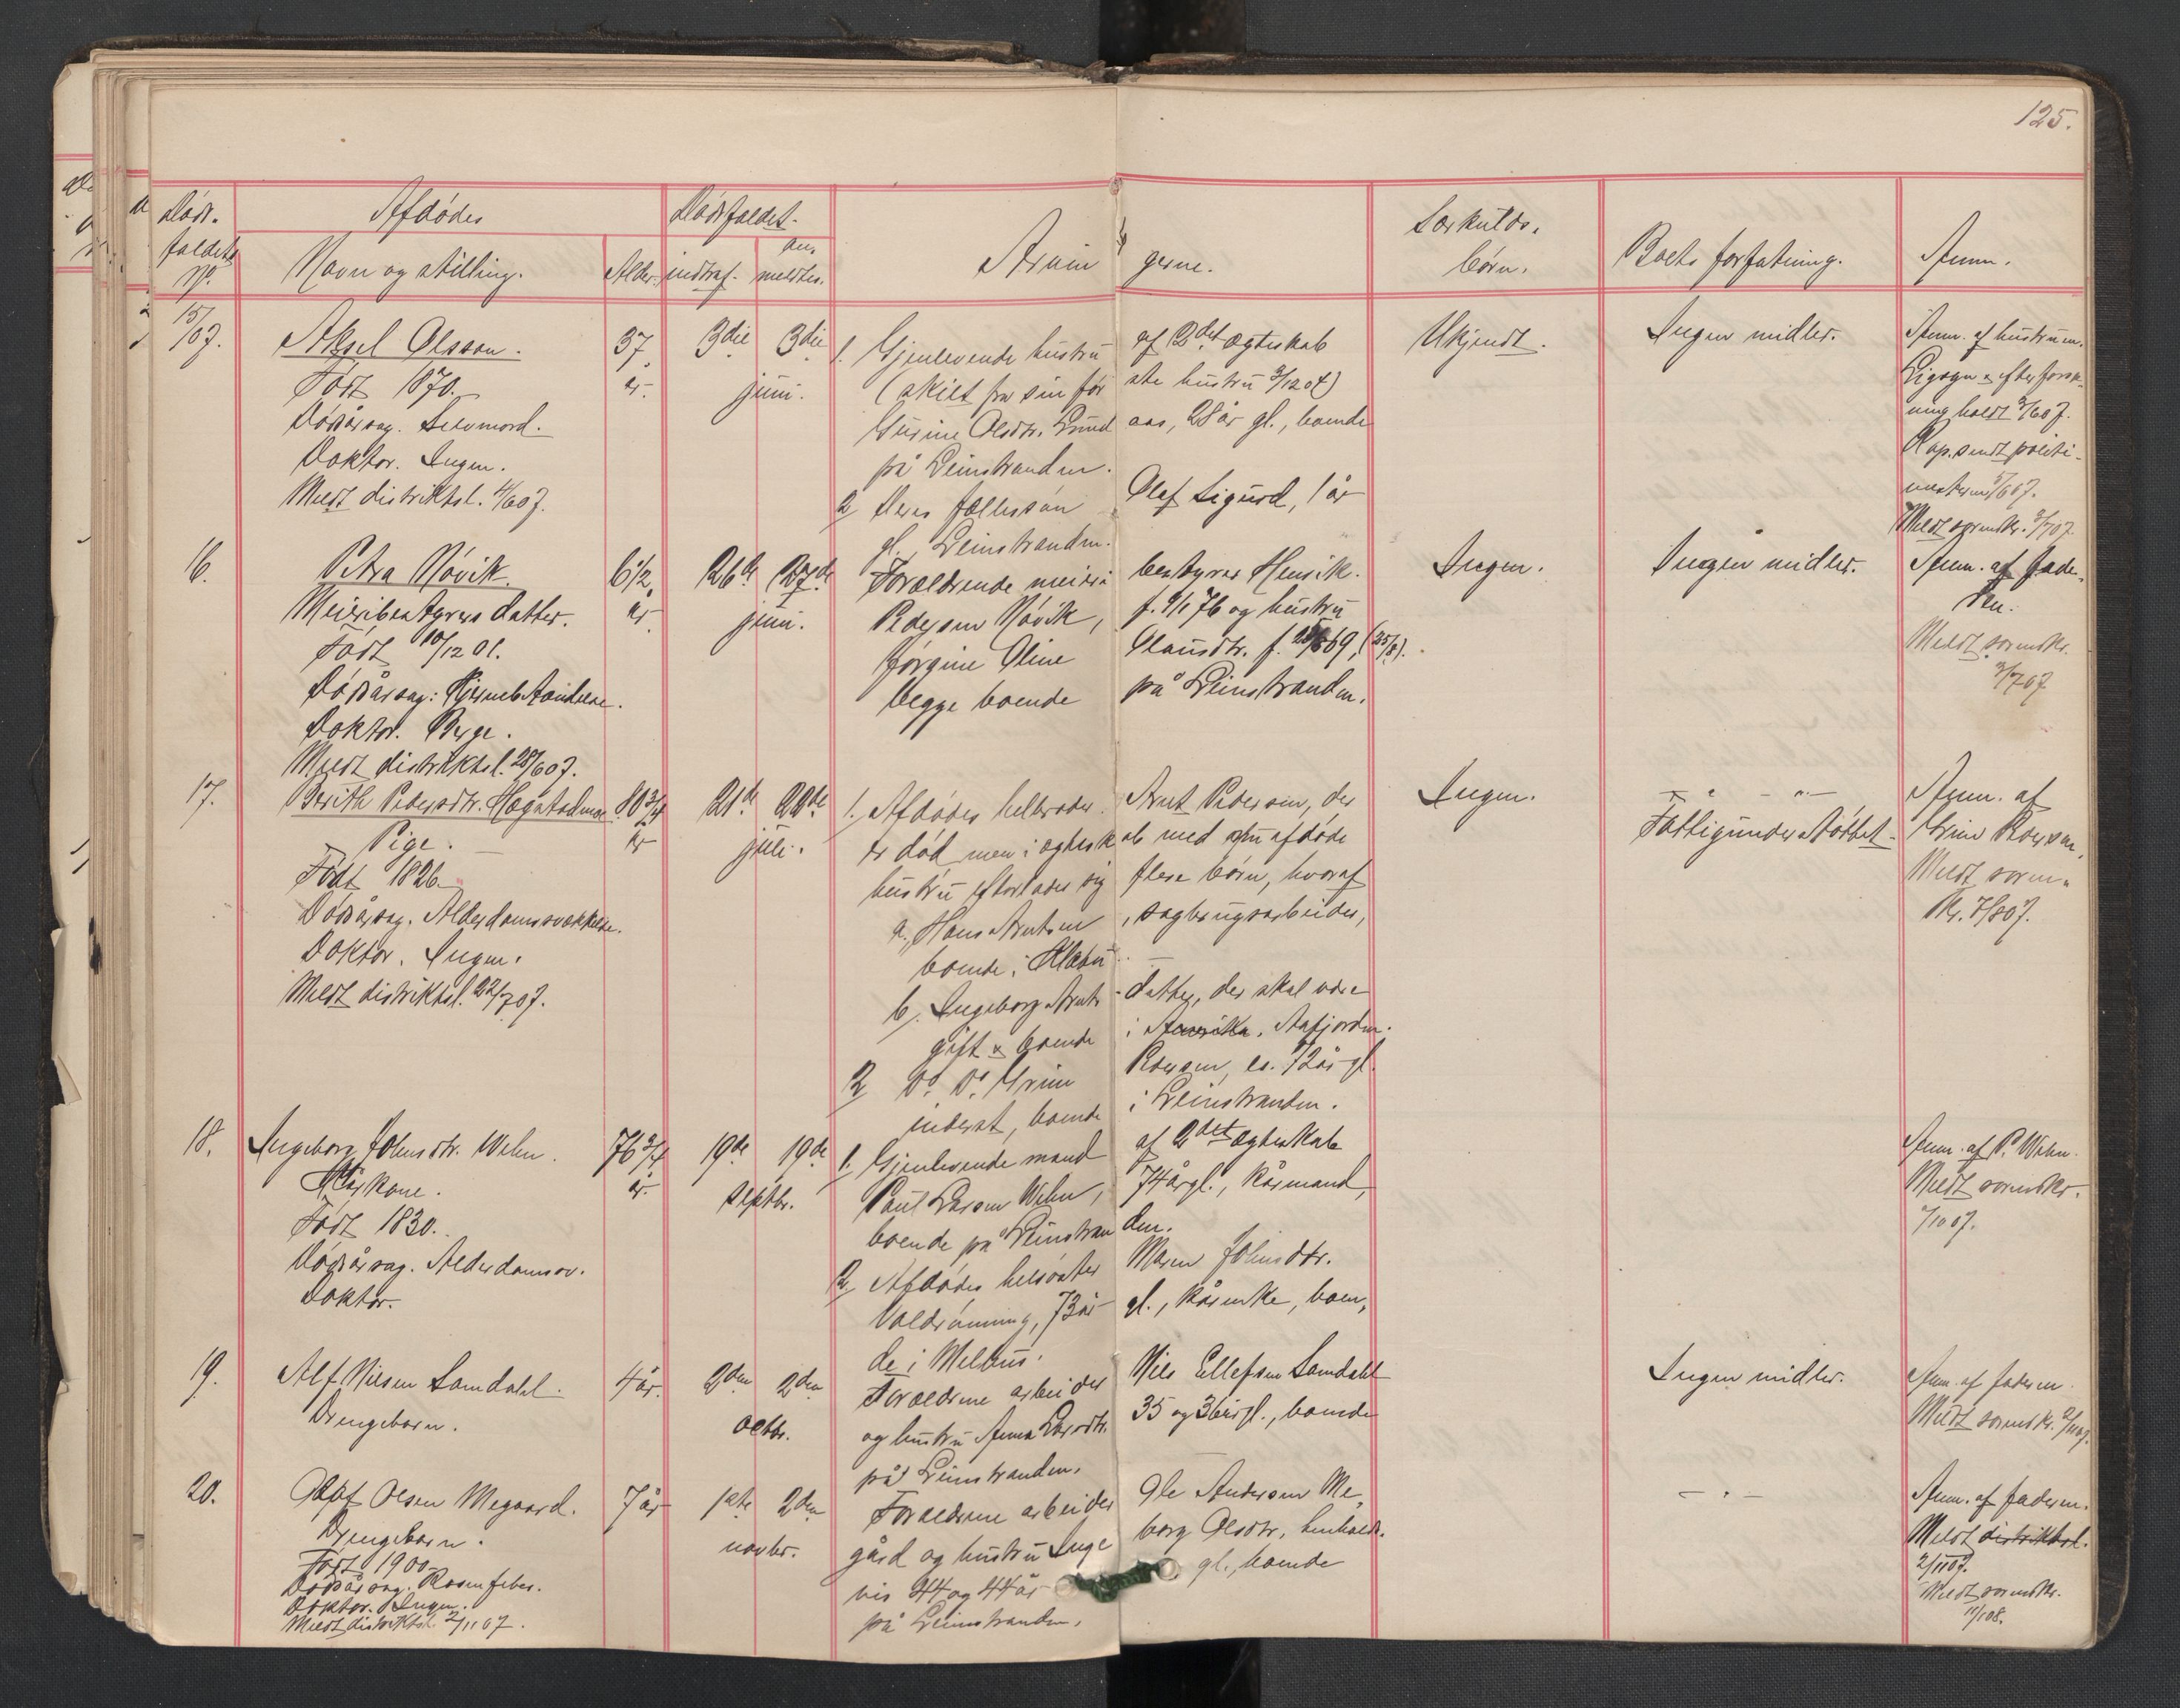 125.
Døds-
faldets
No.
Afdødes
Navn og stilling.
Alder.
Dødsfaldet
indtraf.
an-
meldtes.
Arvin gerne.
Særkulds-
børn.
Boets forfatning.
Anm.
15/07.
Aksel Olsson.
Født 1870.
Dødsårsag. Selvmord.
Doktor. Ingen.
Meldt distriktsl. 4/6 07.
37
år
3die 3die
juni.
1. Gjenlevende hustru af 2det ægteskab
(skilt fra sin før ste hustru 3/12 04)
Gurine Olsdtr. Lund aas, 28 år gl., boende
på Leinstranden.
2 deres fællessøn Olaf Sigurd, 1 år
gl., Leinstranden.
Ukjendt.
Ingen midler.
Anm. af hustruen.
Ligsyn & efterforsk-
ning holdt 3/6 07.
Rap. sendt politi-
mesteren 5/6 07.
Meldt sorenskr. 3/7 07.
16.
Petra Növik.
Meieribestyrers datter.
Født 10/12 01.
Dødsårsag: Hjernebetændelse.
Doktor. Berge.
Meldt distriktsl. 28/6 07.
6 1/2
år
26de 27de
juni.
Forældrende meieri bestyrer Henrik
Pedersen Növik, f. 9/1 76 og hustru
Jørgine Oline Olausdtr. f. 69, (25/8).
begge boende på Leinstranden.
Ingen.
Ingen midler.
Anm. af fade-
ren.
Meldt sorenskr.
3/7 07
17.
Berith Pedersdtr.
Pige.
Født 1826
Dødsårsag. Alderdomssvækkelse.
Doktor. Ingen.
Meldt distriktsl. 22/7 07.
80 3/4
år
21de 22de
juli.
1. Afdødes helbroder Arnt Pedersen, der
er død men i ægtesk ab med sin afdøde
hustru efterlader sig flere børn, hvoraf
a., Hans Arntsen, sagbrugsarbeider,
boende i Klæbu.
b, Ingeborg Arnts - datter, der skal være
gift & boende i Amerika. Aafjorden.
2 Do. Do. Grim Pedersen, ca. 72 år gl.
inderst, boende i Leinstranden.
Ingen.
— „ — „ —
Fattigunderstøttet.
Anm. af
Grim Pedersen.
Meldt soren-
skr. 7/8 07.
18.
Ingeborg Johnsdtr. Wehn.
Kårkone.
Født 1830.
Dødsårsag. Alderdomssv.
Doktor.
76 3/4
år.
19de 19de
septbr.
1. Gjenlevende mand af 2det ægteskab
Paul Larsen Wehn, 74 år gl., kårmand,
boende på Leinstran den.
2, Afdødes helsøster Maren Johnsdtr.
Valdrønning, 73 år gl., kårenke, boen-
de i Melhus.
Anm. af P. Wehn.
Meldt sorenskr.
/10 07.
19.
Alf Nilsen Samdahl.
Drengebarn.
4 år.
2den 2den
octbr.
Forældrene arbeider Nils Ellefsen Samdahl
og hustru Anna Larsdtr. 35 og 36 år gl., boende
på Leinstranden.
Ingen midler.
Anm. af faderen.
Meldt sorenskr. 2/11 07.
20.
Olaf Olsen Megaard.
Drengebarn.
Født 1900
Dødsårsag. Rosenfeber.
Doktor. Ingen.
Meldt distriktsl. 2/11 07.
7 år
1ste 2den
novbr.
Forældrene arbeider Ole Andersen Me-
gård og hustru Inge borg Olsdtr, henholds-
vis 44 og 44 år gl., boende
på Leinstranden.
— „ —
Anm. af faderen.
Meldt distriktsl.
2/11 07.
Meldt sorenskr.
11/1 08.